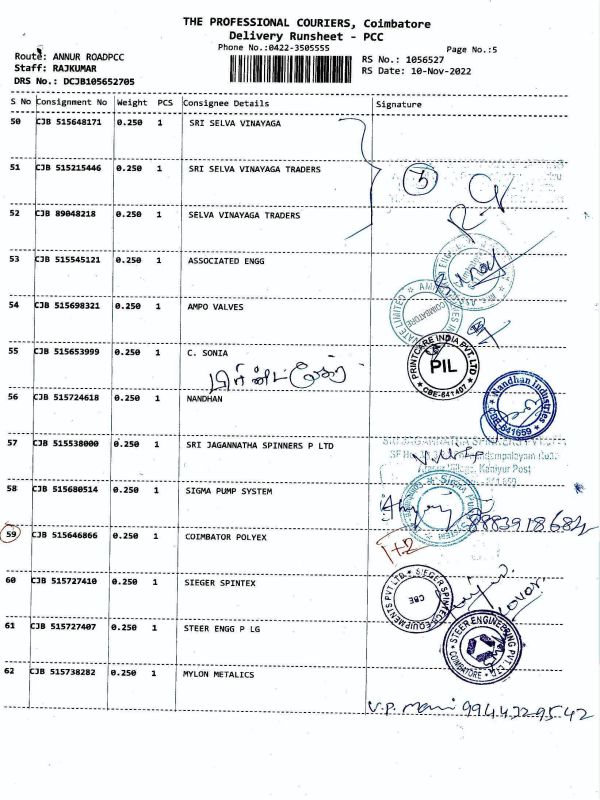 THE PROFESSIONAL COURIERS, Coimbatore
Delivery Runsheet - PCC
Phone No.:0422-3505555
Page No.:5
Route: ANNUR ROADPCC
RS No.: 1056527
Staff: RAJKUMAR
RS Date: 10-Nov-2022
DRS No.: DCJB105652705
S No Consignment No Weight PCS Consignee Details Signature
50 CJB 515648171 0.250 1 SRI SELVA VINAYAGA
51 CJB 515215446 0.250 1 SRI SELVA VINAYAGA TRADERS
3
52 CJB 89048218 0.250 1 SELVA VINAYAGA TRADERS
53 CJB 515545121 0.250 1 ASSOCIATED ENGG
54 CJB 515698321 0.250 1 AMPO VALVES
COIMBATORE
55 CJB 515653999 0.250 1 C. SONIA
PRINTCARE INDIA PVT. LTD
PIL
CBE-641407
56 CJB 515724618 0.250 1 NANDHAN
Nandhan Industries
CBE-641659
57 CJB 515538000 0.250 1 SRI JAGANNATHA SPINNERS P LTD
SRI JAGANNATHA SPINNERS PVT LTD
Kaniyur Post
58 CJB 515680514 0.250 1 SIGMA PUMP SYSTEM
8883918682
59 CJB 515646866 0.250 1 COIMBATOR POLYEX
1+2
60 CJB 515727410 0.250 1 SIEGER SPINTEX
SIEGER SPINTECH EQUIPMENTS PVT LTD
CBE
61 CJB 515727407 0.250 1 STEER ENGG P LG
STEER ENGINEERING PVT. LTD.
COIMBATORE
62 CJB 515738282 0.250 1 MYLON METALICS
V.P. Mani 9944329542